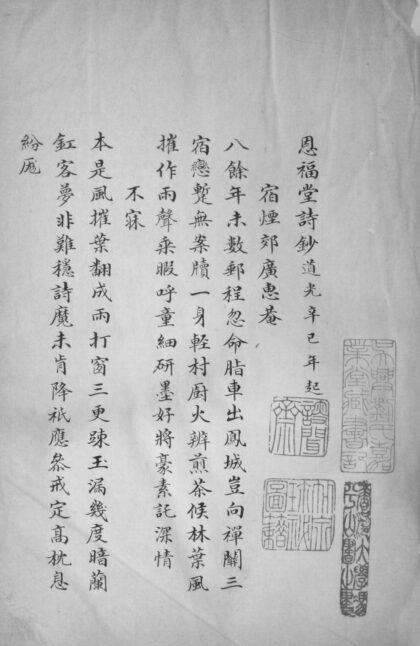 吳興劉氏嘉業堂藏書記
恩福堂詩鈔道光辛巳年起
宿煙郊廣惠菴
八餘年未數郵程忽命脂車出鳳城豈向禪關三
宿戀蹔無案牘一身輕村廚火辨煎茶候林葉風
摧作雨聲乘暇呼童細研墨好將豪素託深情
不寐
本是風摧葉翻成雨打窗三更踈玉漏幾度暗蘭
釭客夢非難穩詩魔未肯降祇應叅戒定高枕息
紛厖